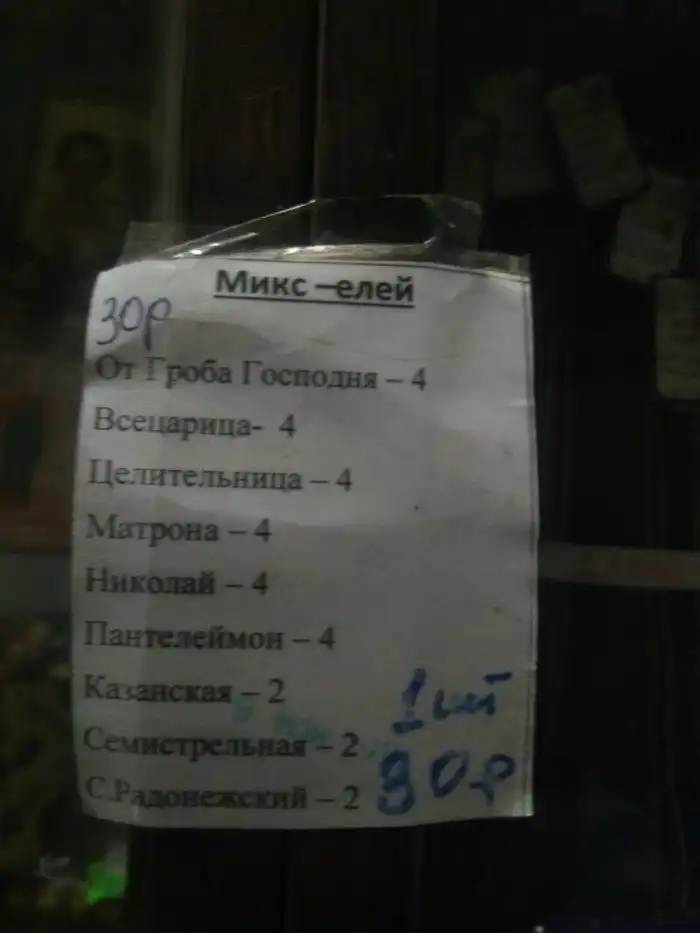 Микс –елей
30р
От Гроба Господня – 4
Всецарица- 4
Целительница – 4
Матрона – 4
Николай – 4
Пантелеймон – 4
Казанская – 2
1 шт
Семистрельная – 2
30р
С.Радонежский – 2